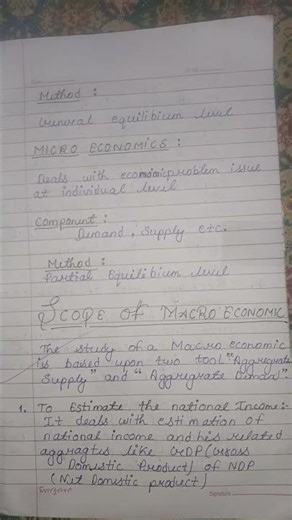 Method :
General Equilibium level
MICRO ECONOMICS :
Deals with economic problem issue
at individual level
Component :
Demand, Supply etc.
Method :
Partial Equilibium level
SCOPE OF MACRO ECONOMIC
The study of a Macro economic
is based upon two tool "Aggregrate
Supply" and "Aggregrate Demand".
1. To Estimate the national Income:-
It deals with estimation of
national income and his related
aggragtes like GDP (Gross
Domestic Product) of NDP
(Net Domestic product)